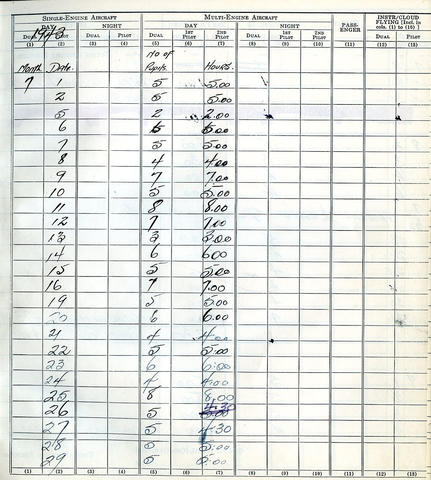 SINGLE-ENGINE AIRCRAFT MULTI-ENGINE AIRCRAFT PASS-ENGER INSTR/CLOUD FLYING [Incl. in cols. (1) to (10)]
DAY NIGHT DAY NIGHT
1943
DUAL PILOT 1ST PILOT 2ND PILOT DUAL 1ST PILOT 2ND PILOT DUAL PILOT
(1) (2) (3) (4) (5) (6) (7) (8) (9) (10) (11) (12) (13)
No of
Month Date. Pupils Hours.
7 1 5 5.00
2 5 5.00
5 2 2.00
6 5 5.00
7 5 5.00
8 4 4.00
9 7 7.00
10 5 5.00
11 8 8.00
12 7 7.00
13 3 3.00
14 6 6.00
15 5 5.00
16 7 7.00
19 5 5.00
20 6 6.00
21 4 4.00
22 5 5.00
23 6 6.00
24 4 4.00
25 8 8.00
26 5 4.30
27 5 4.30
28 5 5.00
29 5 5.00
(1) (2) (3) (4) (5) (6) (7) (8) (9) (10) (11) (12) (13)